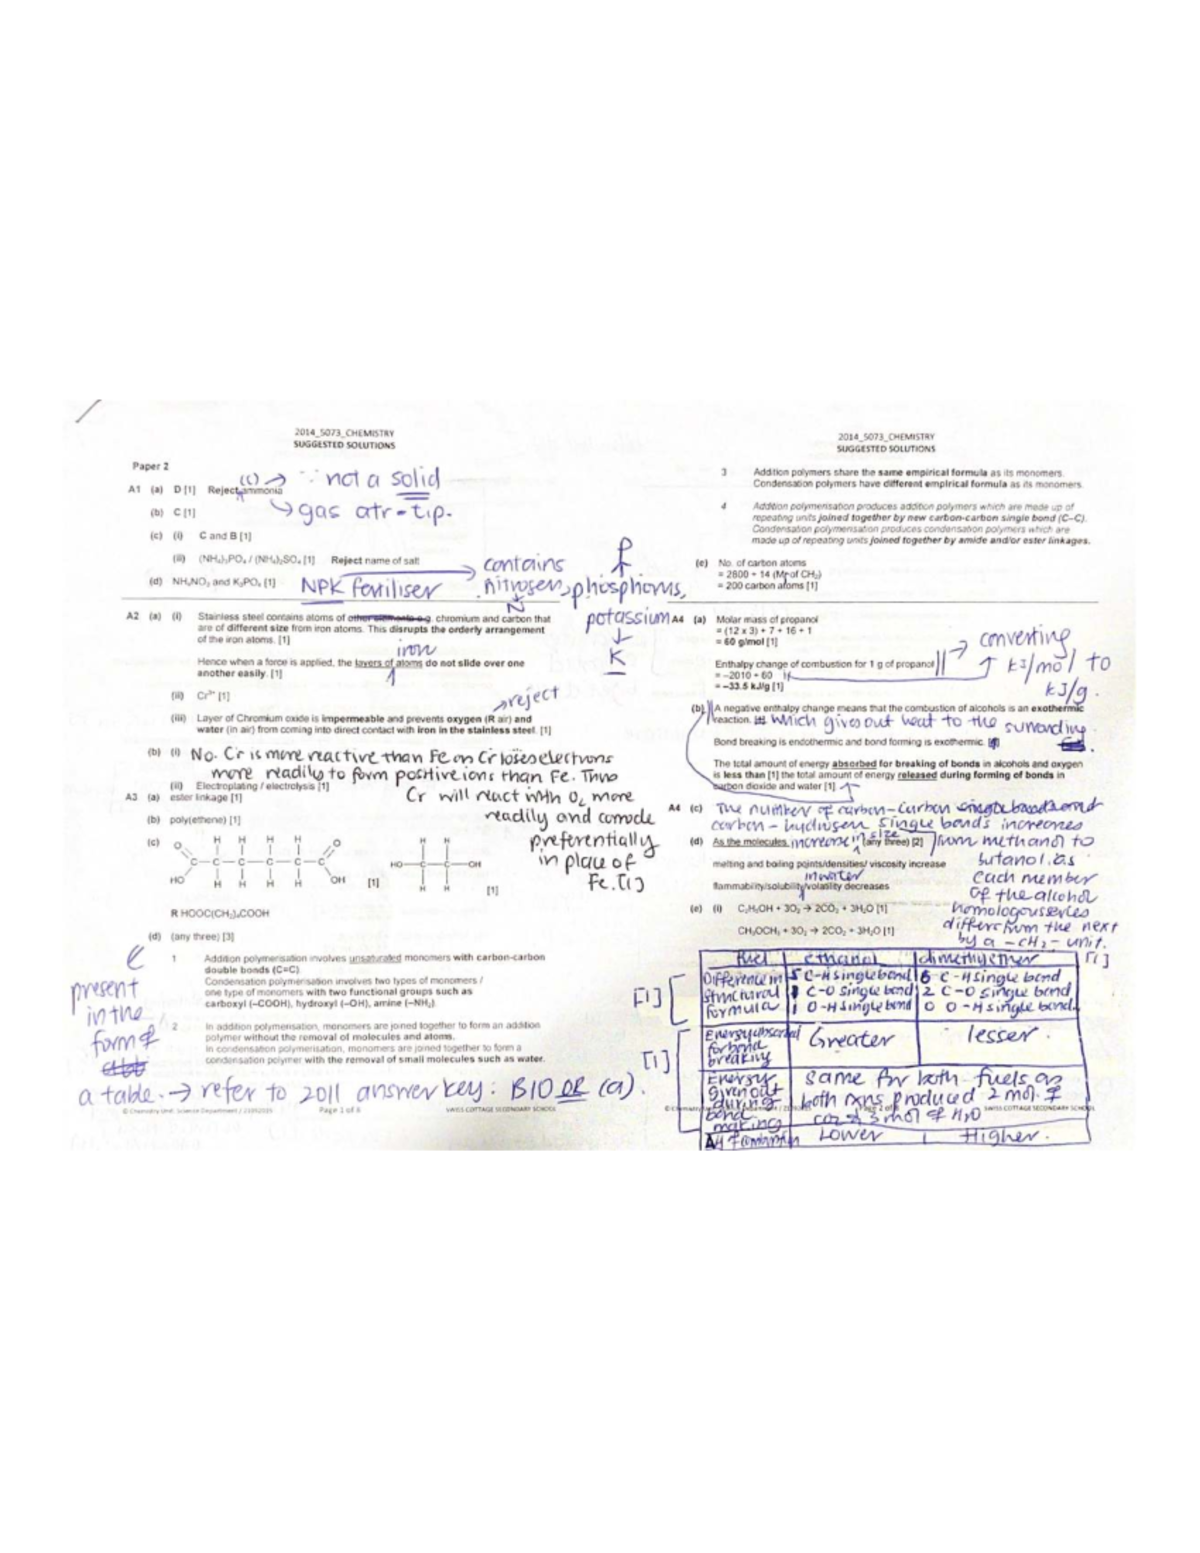 2014_5073_CHEMISTRY
SUGGESTED SOLUTIONS
Paper 2
A1 (a) D [1] Reject ammonia (l) → ∵ not a solid
↳ gas at r-t.p.
(b) C [1]
(c) (i) C and B [1]
(ii) (NH₄)₃PO₄ / (NH₄)₂SO₄ [1] Reject name of salt
(d) NH₄NO₃ and K₃PO₄ [1] NPK fertiliser → contains
nitrogen, phosphorus,
N P
potassium
K
A2 (a) (i) Stainless steel contains atoms of other elements e.g. chromium and carbon that
are of different size from iron atoms. This disrupts the orderly arrangement
of the iron atoms. [1]
iron
Hence when a force is applied, the layers of atoms do not slide over one
another easily. [1]
(ii) Cr³⁺ [1]
→ reject
(iii) Layer of Chromium oxide is impermeable and prevents oxygen (R air) and
water (in air) from coming into direct contact with iron in the stainless steel. [1]
(b) (i) No. Cr is more reactive than Fe Cr loses electrons
more readily to form positive ions than Fe. Thus
Cr will react with O₂ more
readily and corrode
preferentially
in place of
Fe. [1]
(ii) Electroplating / electrolysis [1]
A3 (a) ester linkage [1]
(b) poly(ethene) [1]
(c)
O H H H H O
C—C—C—C—C—C
HO H H H H OH [1]
H H
HO—C—C—OH
H H [1]
R HOOC(CH₂)₄COOH
(d) (any three) [3]
1 Addition polymerisation involves unsaturated monomers with carbon-carbon
double bonds (C=C).
Condensation polymerisation involves two types of monomers /
one type of monomers with two functional groups such as
carboxyl (–COOH), hydroxyl (–OH), amine (–NH₂).
2 In addition polymerisation, monomers are joined together to form an addition
polymer without the removal of molecules and atoms.
In condensation polymerisation, monomers are joined together to form a
condensation polymer with the removal of small molecules such as water.
present
in the
form of
a table. → refer to 2011 answer key: B10 OR (a).
Page 1 of 6
SWISS COTTAGE SECONDARY SCHOOL
2014_5073_CHEMISTRY
SUGGESTED SOLUTIONS
3 Addition polymers share the same empirical formula as its monomers.
Condensation polymers have different empirical formula as its monomers.
4 Addition polymerisation produces addition polymers which are made up of
repeating units joined together by new carbon-carbon single bond (C–C).
Condensation polymerisation produces condensation polymers which are
made up of repeating units joined together by amide and/or ester linkages.
(e) No. of carbon atoms
= 2800 ÷ 14 (Mr of CH₂)
= 200 carbon atoms [1]
A4 (a) Molar mass of propanol
= (12 x 3) + 7 + 16 + 1
= 60 g/mol [1]
Enthalpy change of combustion for 1 g of propanol
= –2010 ÷ 60
= –33.5 kJ/g [1]
→ converting
↑ kJ/mol to
kJ/g.
(b) A negative enthalpy change means that the combustion of alcohols is an exothermic
reaction. which gives out heat to the surrounding
Bond breaking is endothermic and bond forming is exothermic.
The total amount of energy absorbed for breaking of bonds in alcohols and oxygen
is less than [1] the total amount of energy released during forming of bonds in
carbon dioxide and water [1]
A4 (c) The number of carbon-carbon single bond and
carbon-hydrogen single bonds increases
from methanol to
butanol. as
each member
of the alcohol
homologous series
differs from the next
by a -CH₂- unit.
[1]
(d) As the molecules increase in size (any three) [2]
melting and boiling points/densities/ viscosity increase
in water
flammability/solubility/volatility decreases
(e) (i) C₂H₅OH + 3O₂ → 2CO₂ + 3H₂O [1]
CH₃OCH₃ + 3O₂ → 2CO₂ + 3H₂O [1]
Fuel ethanol dimethylether
[1] Difference in structural formula
5 C-H single bond 6 C-H single bond
1 C-O single bond 2 C-O single bond
1 O-H single bond 0 O-H single bond
[1] Energy absorbed for bond breaking Greater lesser
Energy given out during bond making same for both fuels as
both rxns produced 2 mol of
CO₂ & 3 mol of H₂O
ΔH Lower Higher.
SWISS COTTAGE SECONDARY SCHOOL